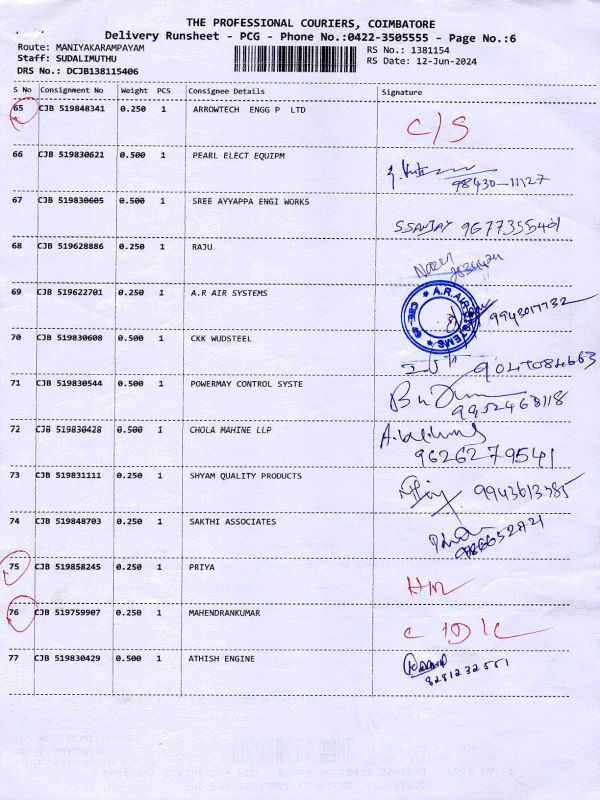 THE PROFESSIONAL COURIERS, COIMBATORE
Delivery Runsheet - PCG - Phone No.:0422-3505555 - Page No.:6
Route: MANIYAKARAMPAYAM RS No.: 1381154
Staff: SUDALIMUTHU RS Date: 12-Jun-2024
DRS No.: DCJB138115406
S No Consignment No Weight PCS Consignee Details Signature
65 CJB 519848341 0.250 1 ARROWTECH ENGG P LTD C/S
66 CJB 519830621 0.500 1 PEARL ELECT EQUIPM
98430-11127
67 CJB 519830605 0.500 1 SREE AYYAPPA ENGI WORKS
SSANJAY 9677355401
68 CJB 519628886 0.250 1 RAJU
69 CJB 519622701 0.250 1 A.R AIR SYSTEMS A.R.AIR SYSTEMS 9943017732
70 CJB 519830608 0.500 1 CKK WUDSTEEL
71 CJB 519830544 0.500 1 POWERMAY CONTROL SYSTE
9952468118
72 CJB 519830428 0.500 1 CHOLA MAHINE LLP
9626279541
73 CJB 519831111 0.250 1 SHYAM QUALITY PRODUCTS
74 CJB 519848703 0.250 1 SAKTHI ASSOCIATES
75 CJB 519858245 0.250 1 PRIYA
76 CJB 519759907 0.250 1 MAHENDRANKUMAR
77 CJB 519830429 0.500 1 ATHISH ENGINE
8281232551